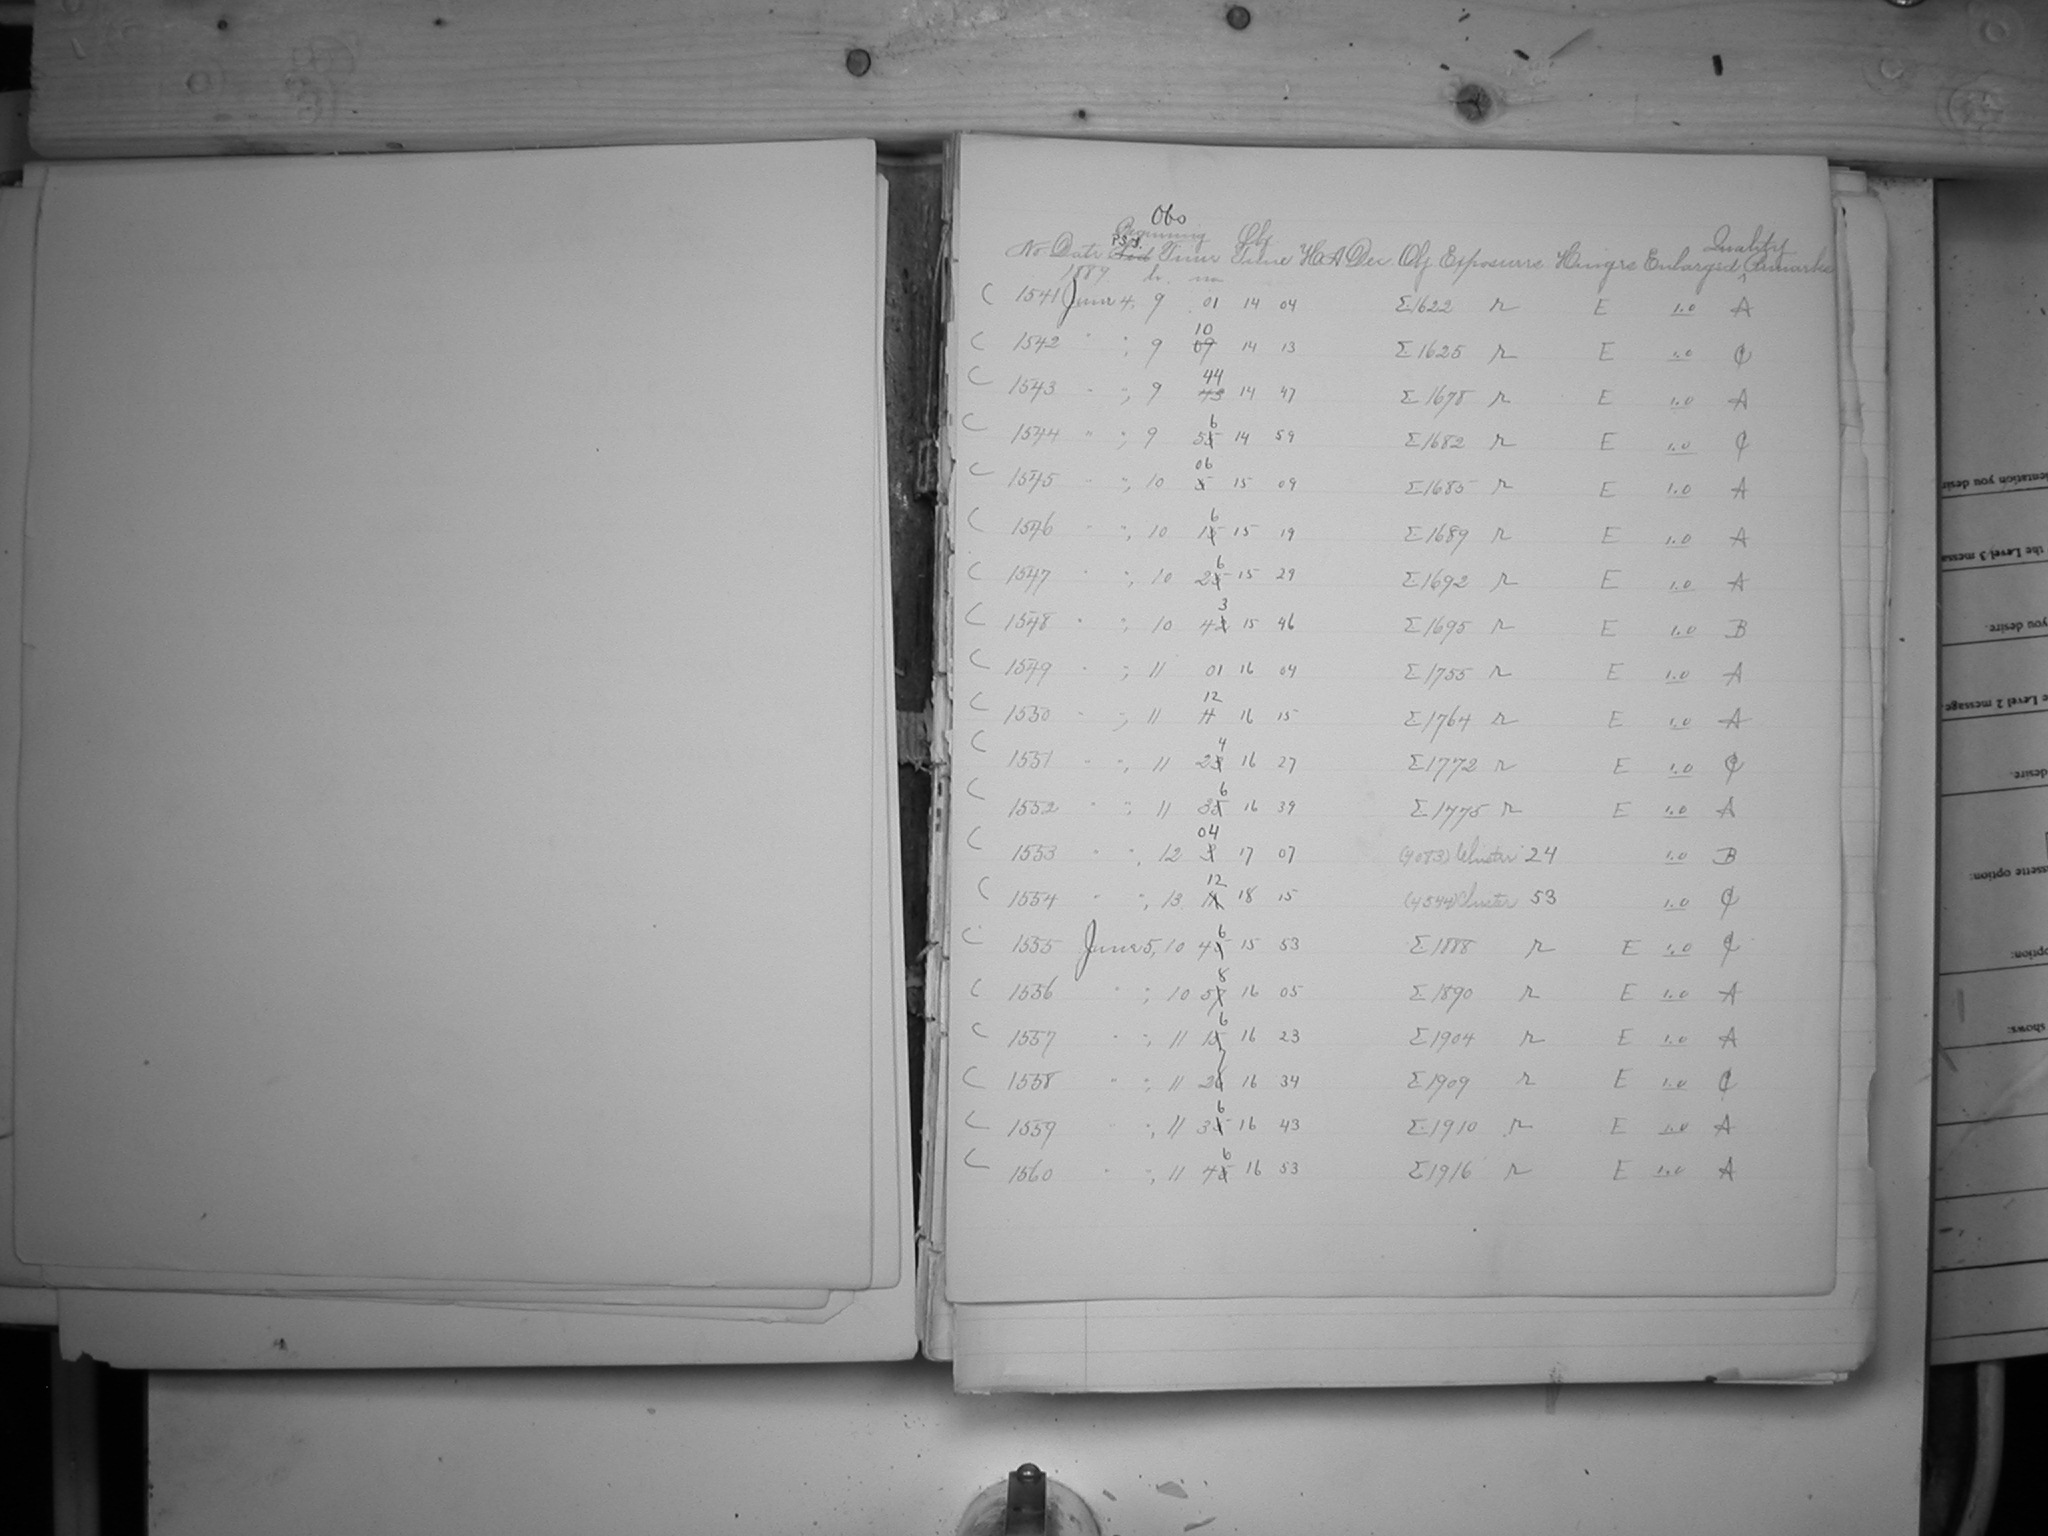 Obs
Beginning Obs Quality
P.S.T.
No Date Time Time H A Dec Obj Exposures Hungre Enlarged Remarks
1889 h. m
C 1541 June 4, 9 01 14 04 Σ1622 r E 1.0 A
10
C 1542 " " ; 9 09 14 13 Σ1625 r E 1.0 C
44
C 1543 " " ; 9 43 14 47 Σ1678 r E 1.0 A
6
C 1544 " " ; 9 55 14 59 Σ1682 r E 1.0 C
06
C 1545 " " , 10 5 15 09 Σ1685 r E 1.0 A
6
C 1546 " " , 10 15 15 19 Σ1689 r E 1.0 A
6
C 1547 " " , 10 25 15 29 Σ1692 r E 1.0 A
3
C 1548 " " , 10 42 15 46 Σ1695 r E 1.0 B
C 1549 " " ; 11 01 16 04 Σ1755 r E 1.0 A
12
C 1550 " " ; 11 11 16 15 Σ1764 r E 1.0 A
4
C 1551 " " , 11 23 16 27 Σ1772 r E 1.0 C
6
C 1552 " " ; 11 35 16 39 Σ1775 r E 1.0 A
04
C 1553 " " , 12 3 17 07 (4083) Cluster 24 1.0 B
12
C 1554 " " , 13 11 18 15 (4544) Cluster 53 1.0 C
6
C 1555 June 5, 10 45 15 53 Σ1888 r E 1.0 C
8
C 1556 " " ; 10 57 16 05 Σ1890 r E 1.0 A
6
C 1557 " " ; 11 15 16 23 Σ1904 r E 1.0 A
7
C 1558 " " ; 11 26 16 34 Σ1909 r E 1.0 C
6
C 1559 " " , 11 35 16 43 Σ1910 r E 1.0 A
6
C 1560 " " , 11 45 16 53 Σ1916 r E 1.0 A
entation you desir
the Level 3 messa
you desire.
e Level 2 message
desire.
ssette option:
option:
shows: